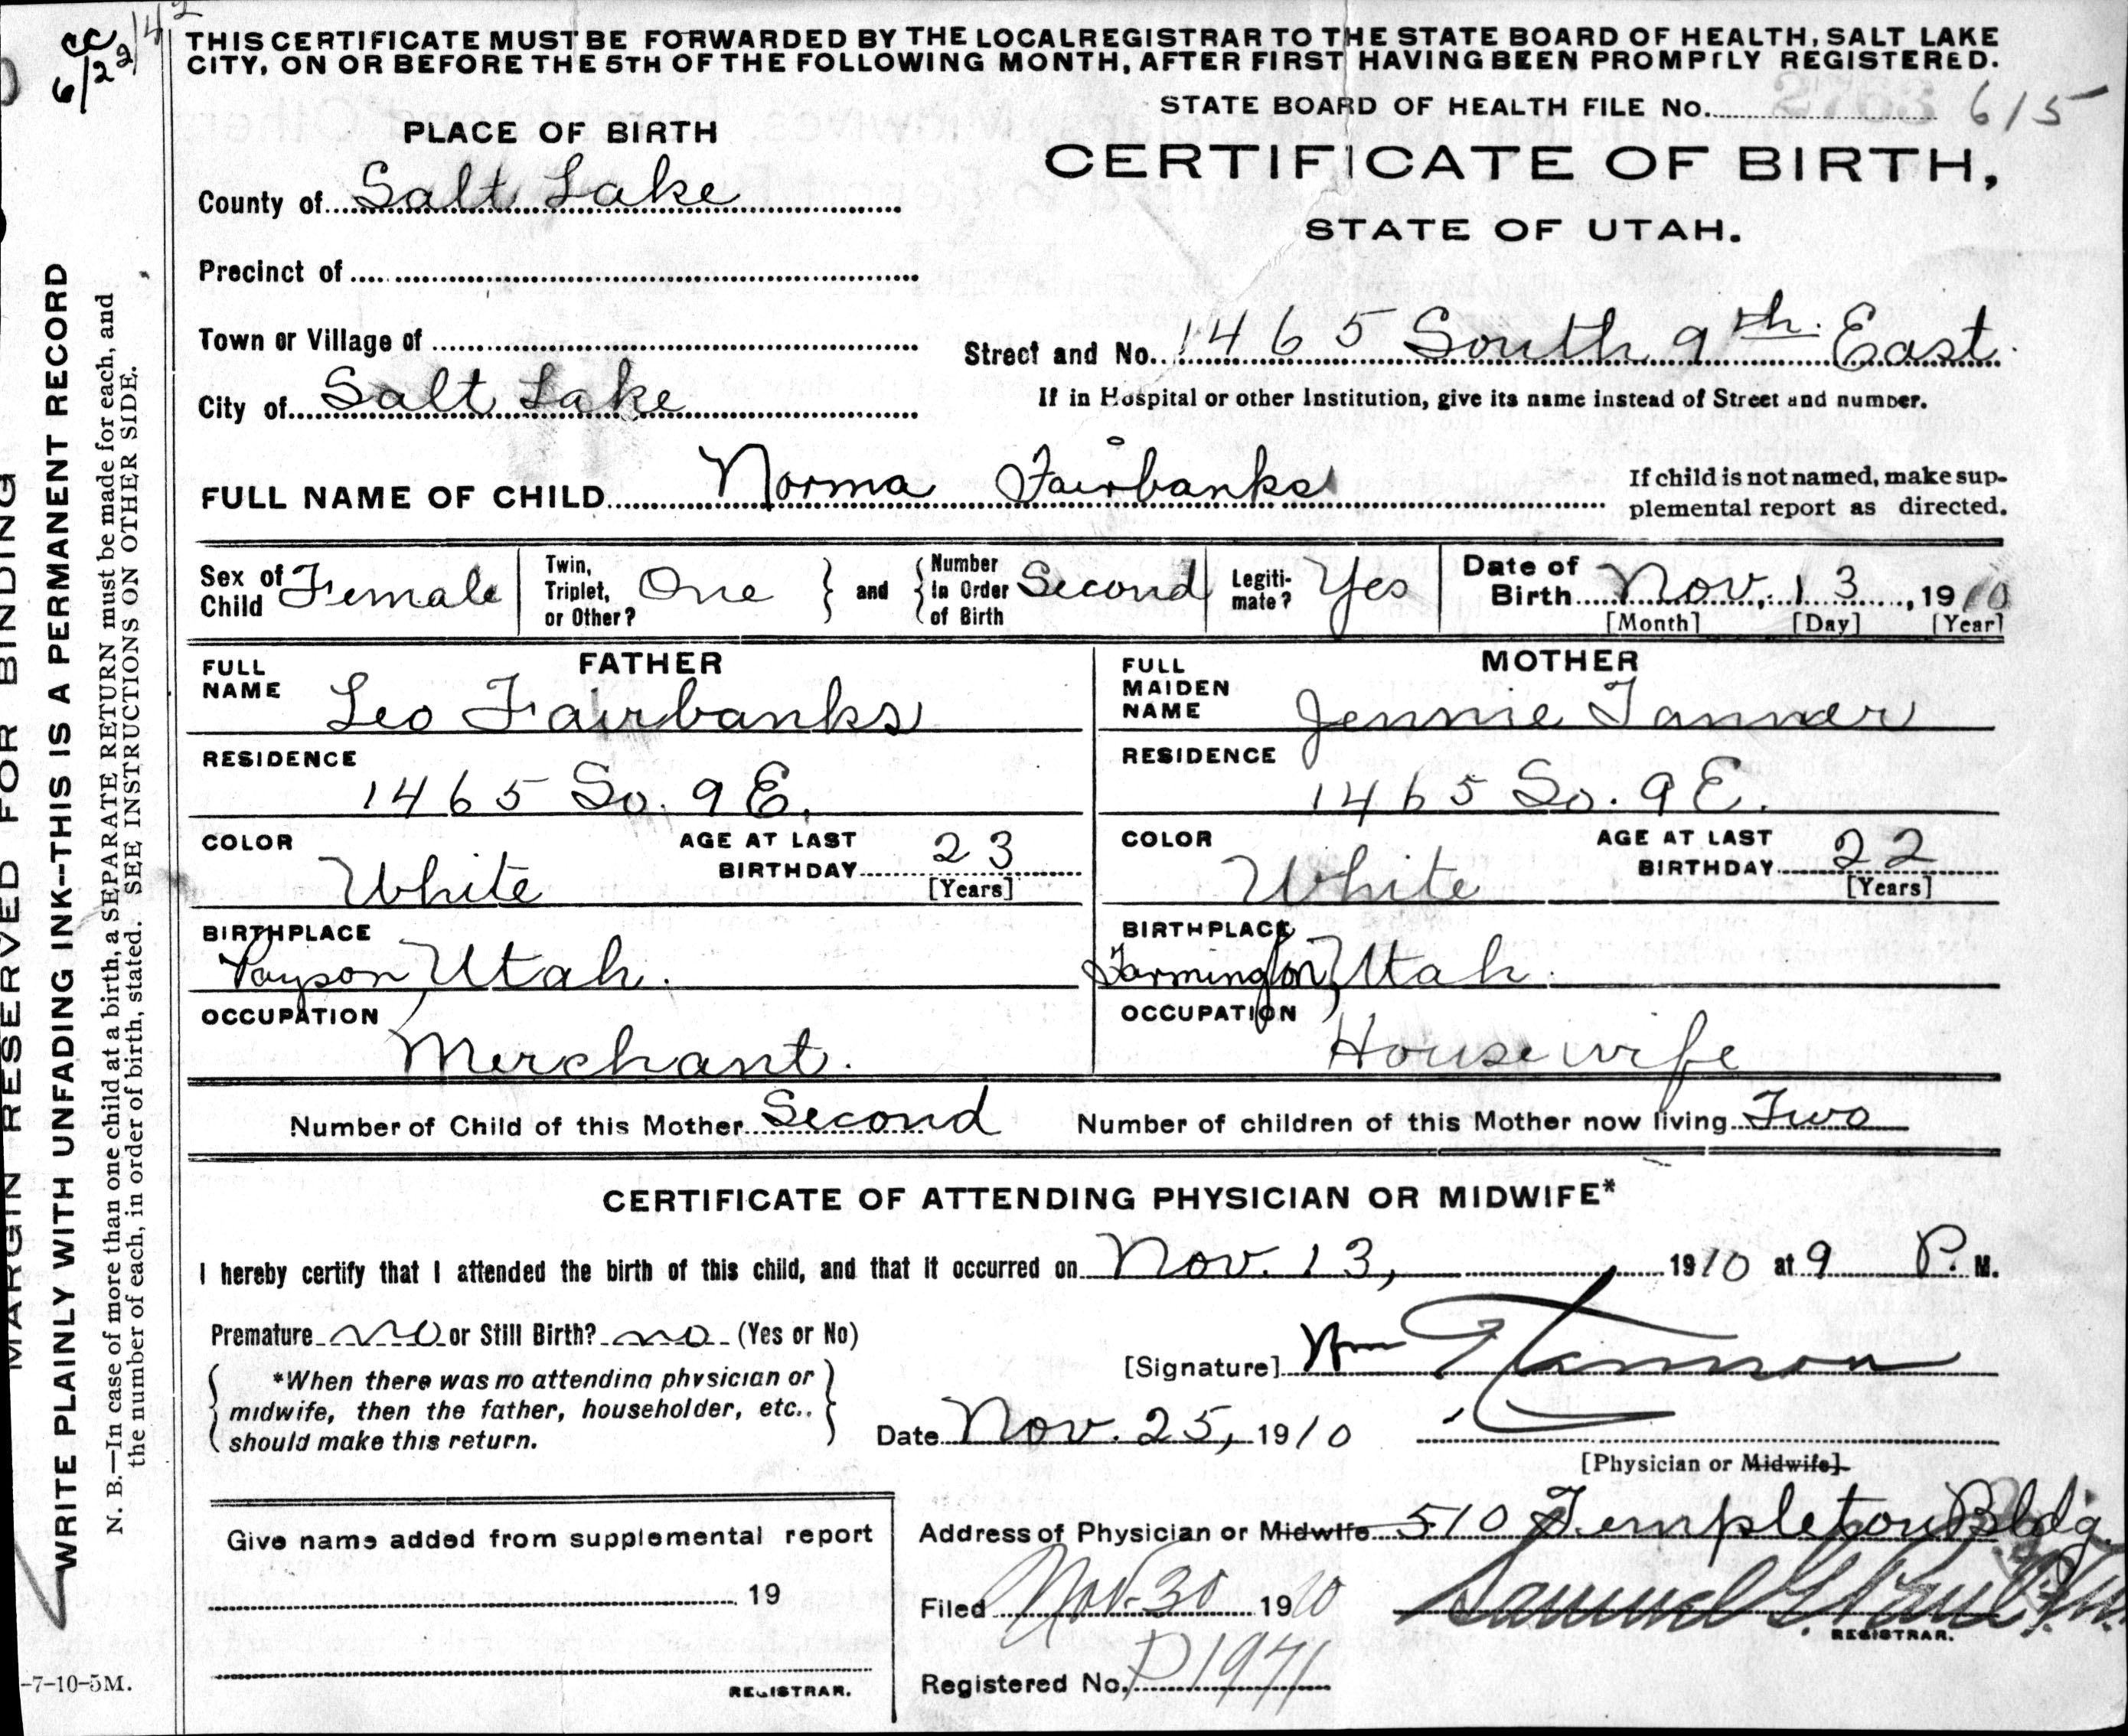 cc
6/22/42
THIS CERTIFICATE MUST BE FORWARDED BY THE LOCAL REGISTRAR TO THE STATE BOARD OF HEALTH, SALT LAKE
CITY, ON OR BEFORE THE 5TH OF THE FOLLOWING MONTH, AFTER FIRST HAVING BEEN PROMPTLY REGISTERED.
STATE BOARD OF HEALTH FILE No. 615
PLACE OF BIRTH
CERTIFICATE OF BIRTH,
STATE OF UTAH.
County of Salt Lake
Precinct of
Town or Village of
Street and No. 1465 South 9th East.
City of Salt Lake
If in Hospital or other Institution, give its name instead of Street and number.
FULL NAME OF CHILD Norma Fairbanks
If child is not named, make sup-
plemental report as directed.
Sex of Child Female
Twin, Triplet, or Other? One } and { Number in Order of Birth Second
Legiti-mate? Yes
Date of Birth Nov. 13, 1910
[Month] [Day] [Year]
FATHER
FULL NAME Leo Fairbanks
RESIDENCE
1465 So. 9 E.
COLOR White
AGE AT LAST BIRTHDAY 23
[Years]
BIRTHPLACE
Payson, Utah.
OCCUPATION
Merchant.
MOTHER
FULL MAIDEN NAME Jennie Tanner
RESIDENCE
1465 So. 9 E.
COLOR White
AGE AT LAST BIRTHDAY 22
[Years]
BIRTHPLACE
Farmington, Utah.
OCCUPATION
Housewife
Number of Child of this Mother Second Number of children of this Mother now living Two
CERTIFICATE OF ATTENDING PHYSICIAN OR MIDWIFE*
I hereby certify that I attended the birth of this child, and that it occurred on Nov. 13, 1910 at 9 P. M.
Premature no or Still Birth? no (Yes or No)
*When there was no attending physician or
midwife, then the father, householder, etc.,
should make this return.
[Signature] Wm
Date Nov. 25, 1910
[Physician or Midwife]
Address of Physician or Midwife 510 Templeton Bldg.
Filed Nov. 30 1910
Samuel G. Paul
REGISTRAR.
Registered No. P1971
Give name added from supplemental report
19
REGISTRAR.
MARGIN RESERVED FOR BINDING
WRITE PLAINLY WITH UNFADING INK--THIS IS A PERMANENT RECORD
N. B.—In case of more than one child at a birth, a SEPARATE RETURN must be made for each, and
the number of each, in order of birth, stated. SEE INSTRUCTIONS ON OTHER SIDE.
-7-10-5M.